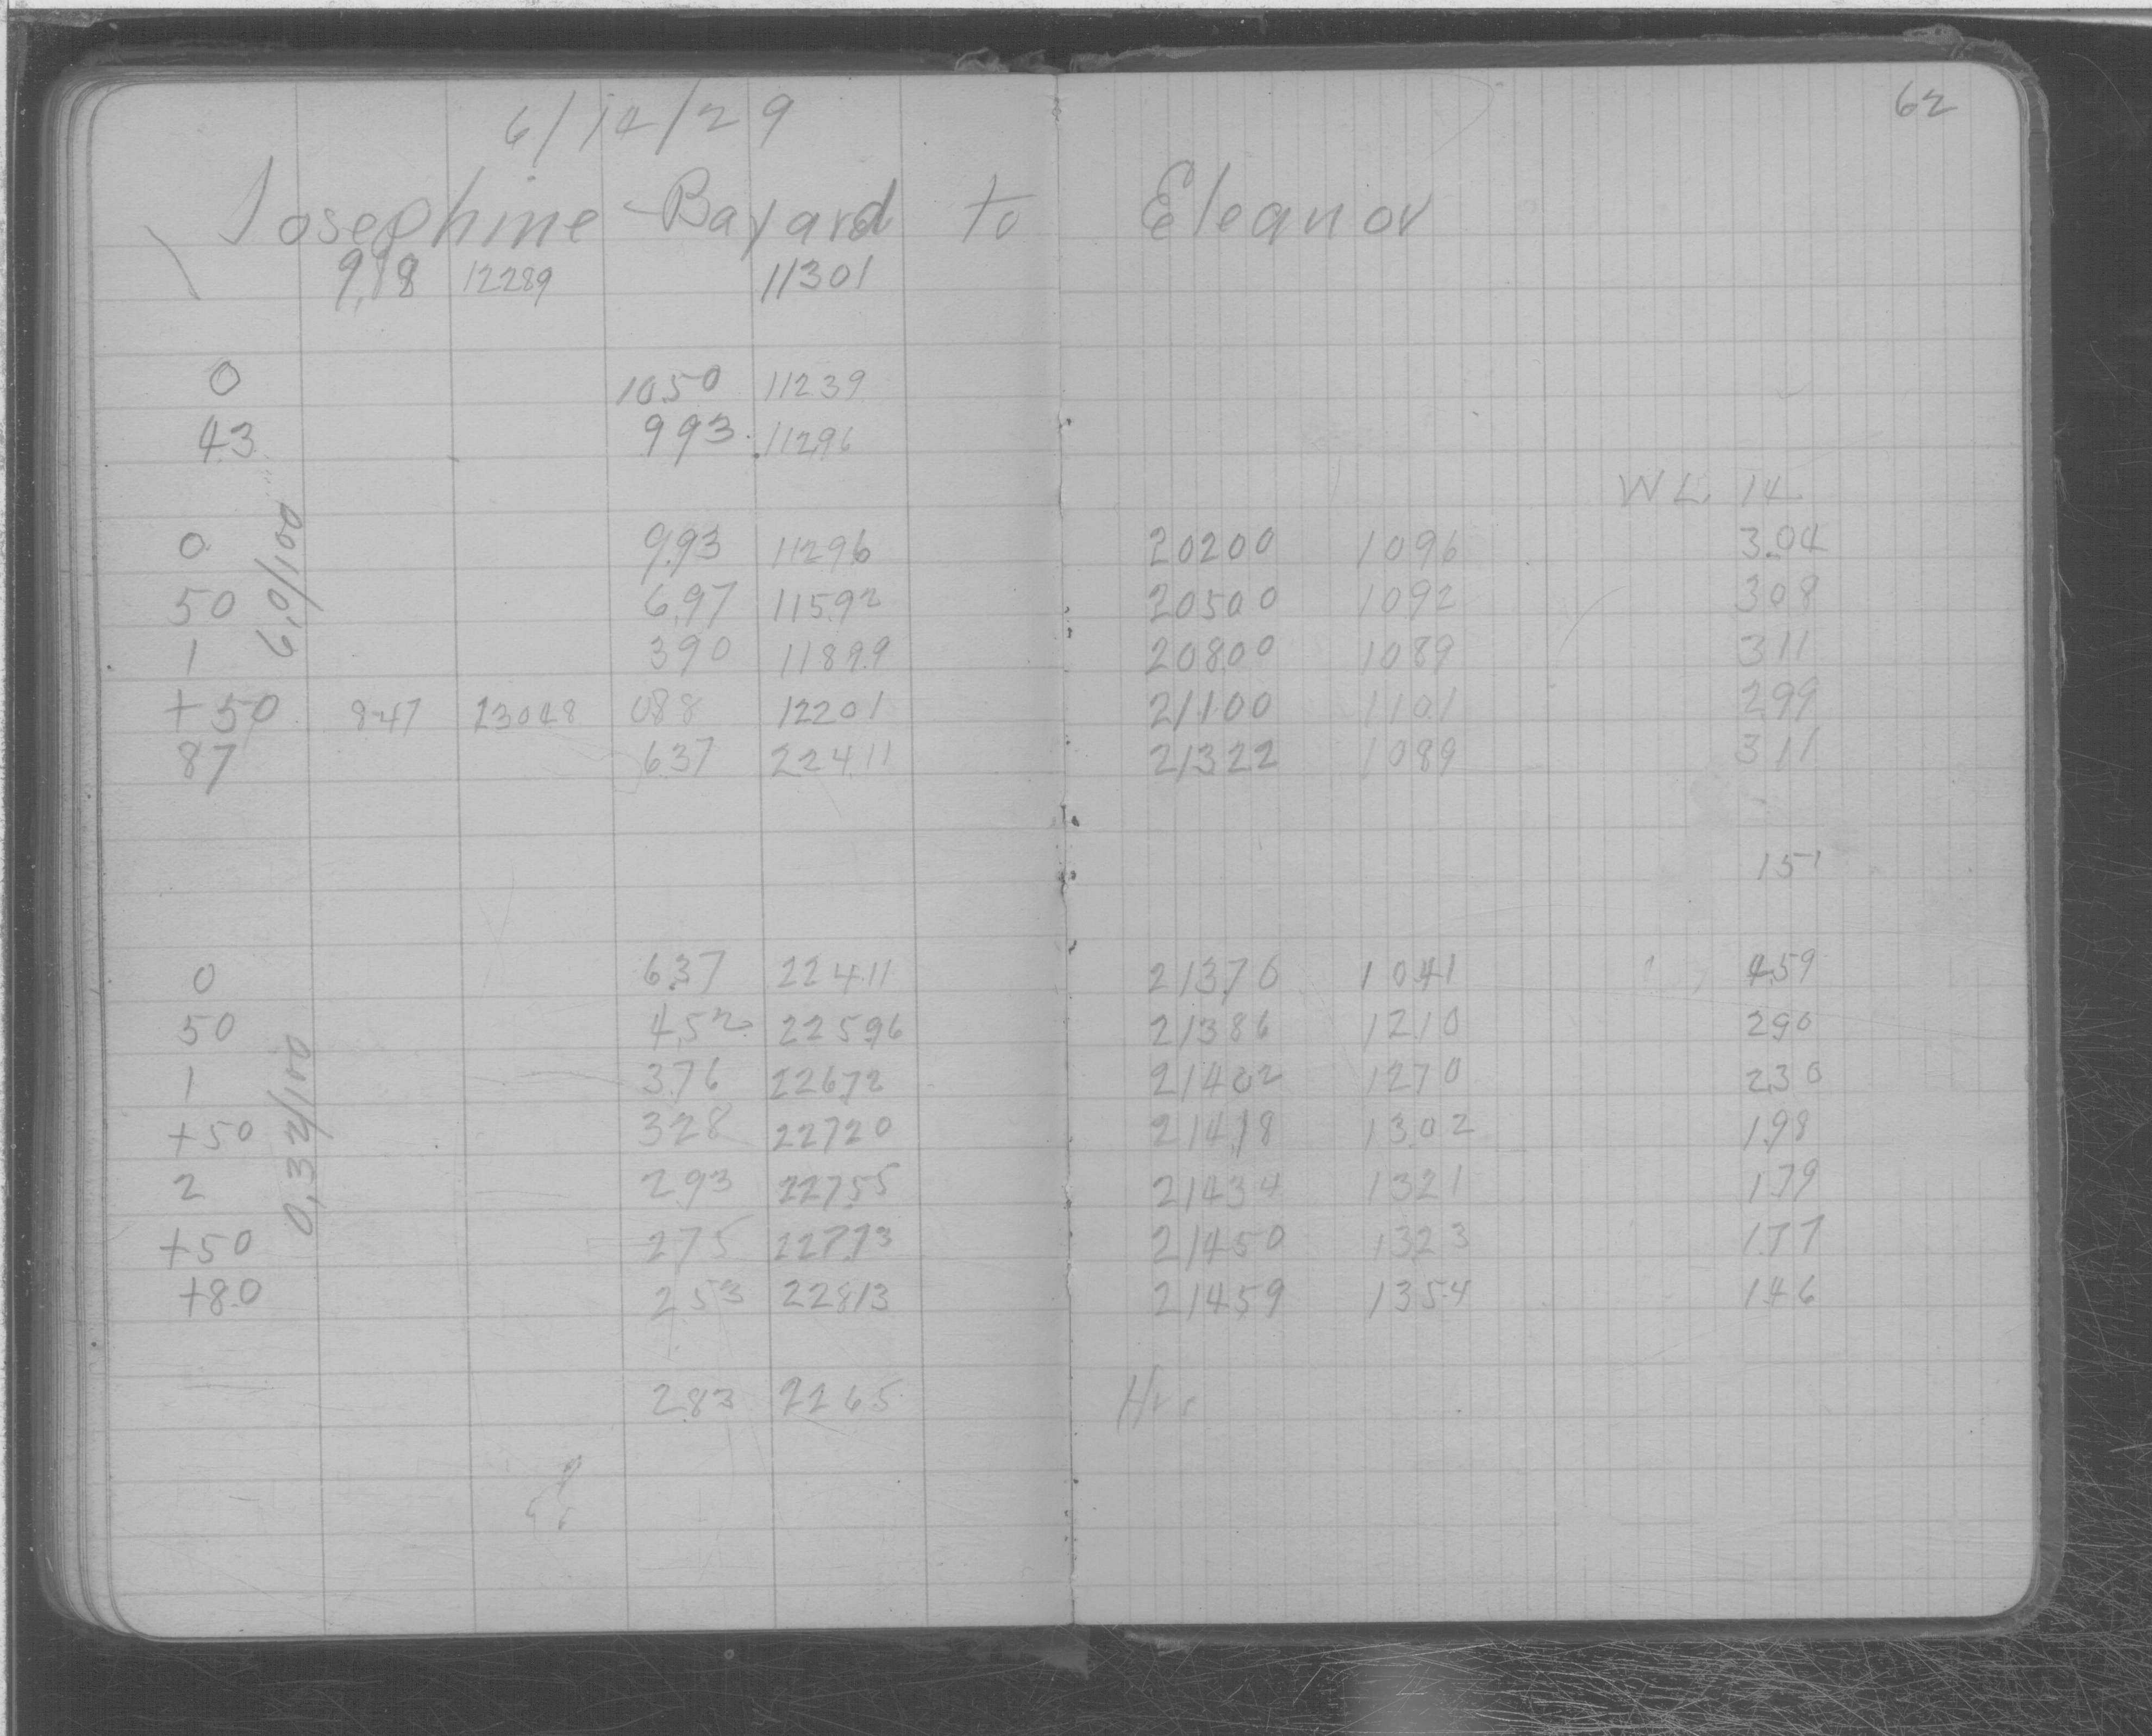 62
6/12/29
Josephine - Bayard to Eleanor
9.88 12289 11301
0 10.50 11239
43 993 11296
WL 14
0 9.93 11296 20200 1096 3.04
50 6.97 11592 20500 1092 308
1 390 11899 20800 1089 311
+50 847 13048 088 12201 21100 1101 299
87 637 22411 21322 1089 311
6.0/100
151
0 637 22411 21370 1041 459
50 4.52 22596 21386 1210 290
1 376 22672 21402 1270 230
+50 328 22720 21418 1302 198
2 293 22755 21434 1321 179
+50 275 22773 21450 1323 177
+80 253 22813 21459 1354 146
0.32/100
283 2265 Hr.